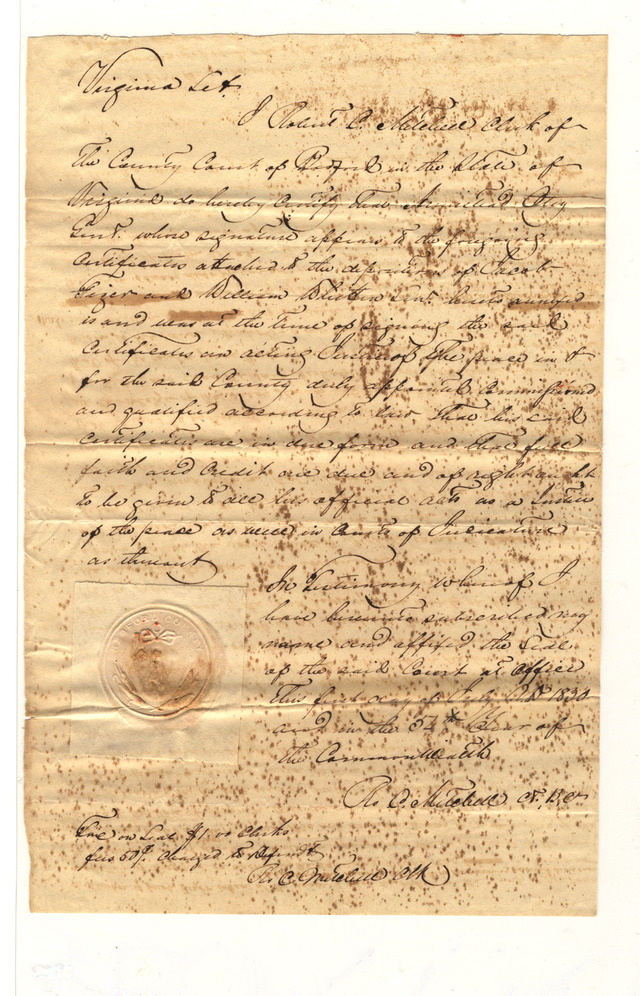 Virginia Sct.
I Robert C. Mitchell Clerk of
the County Court of Bedford in the State of
Virginia do hereby certify that Armistead Otey
Gent. whose signature appears to the foregoing
Certificates attached to the depositions of Jacob
Fizer and William Gent. hereto annexed
is and was at the time of signing the said
Certificates an acting Justice of the peace in &
for the said County duly appointed Commissioned
and qualified according to law that his said
certificates are in due form and that full
faith and credit are due and of right ought
to be given to all his official acts as a Justice
of the peace as well in Courts of Judicature
as thereout
In Testimony Whereof I
have hereunto subscribed my
name and affixed the Seal
of the said Court at office
this first day of July A.D. 1830
and in the 54th Year of
the Commonwealth
Ro. C. Mitchell C. B. C.
Tax on Seal $1. &
fees 50¢. charged to
Ro. C. Mitchell Clk